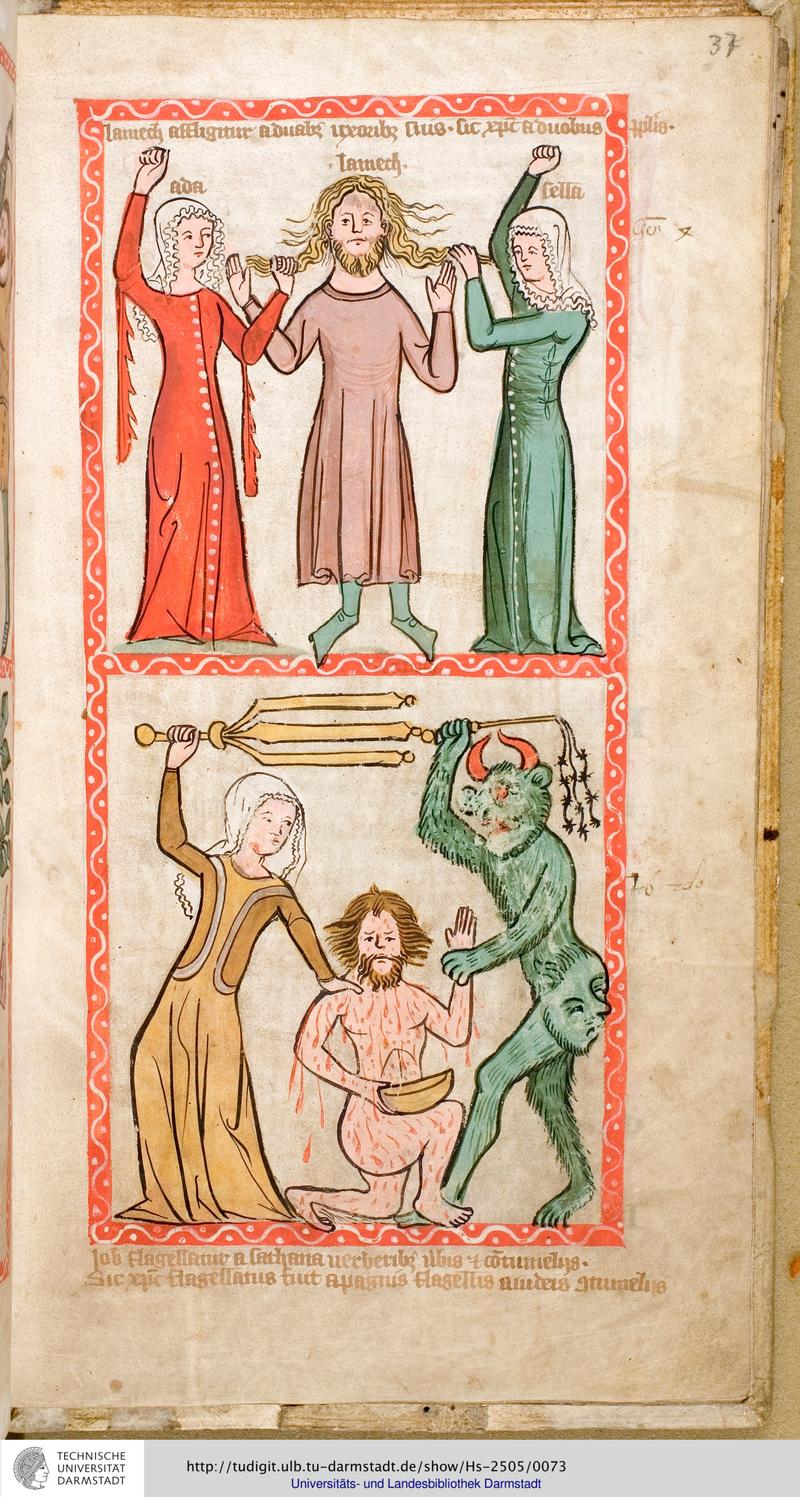 37
lamech affligitur a duabꝫ uxoribꝫ suis · sic xp̄c a duobus pp̄lis ·
· lamech ·
ada
sella
Gen̄ 4
Job flagellatur a sathana uerberibꝫ ūbis ⁊ cōtumelijs ·
Sic xp̄c flagellatus fuit a paganis flagellis a iudeis ꝯtumelijs
TECHNISCHE
UNIVERSITÄT
DARMSTADT
http://tudigit.ulb.tu-darmstadt.de/show/Hs-2505/0073
Universitäts- und Landesbibliothek Darmstadt